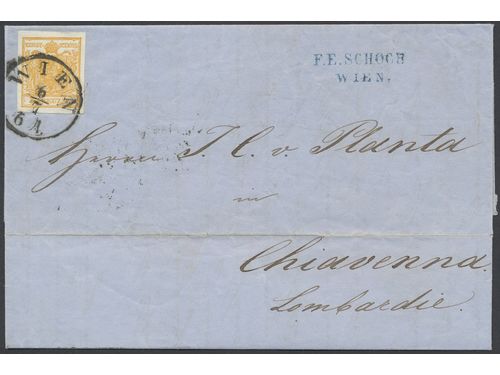 WIEN
6/7
6 A.
F.E. SCHOCH
WIEN.
Herrn J. C. v. Planta
in
Chiavenna.
Lombardie.